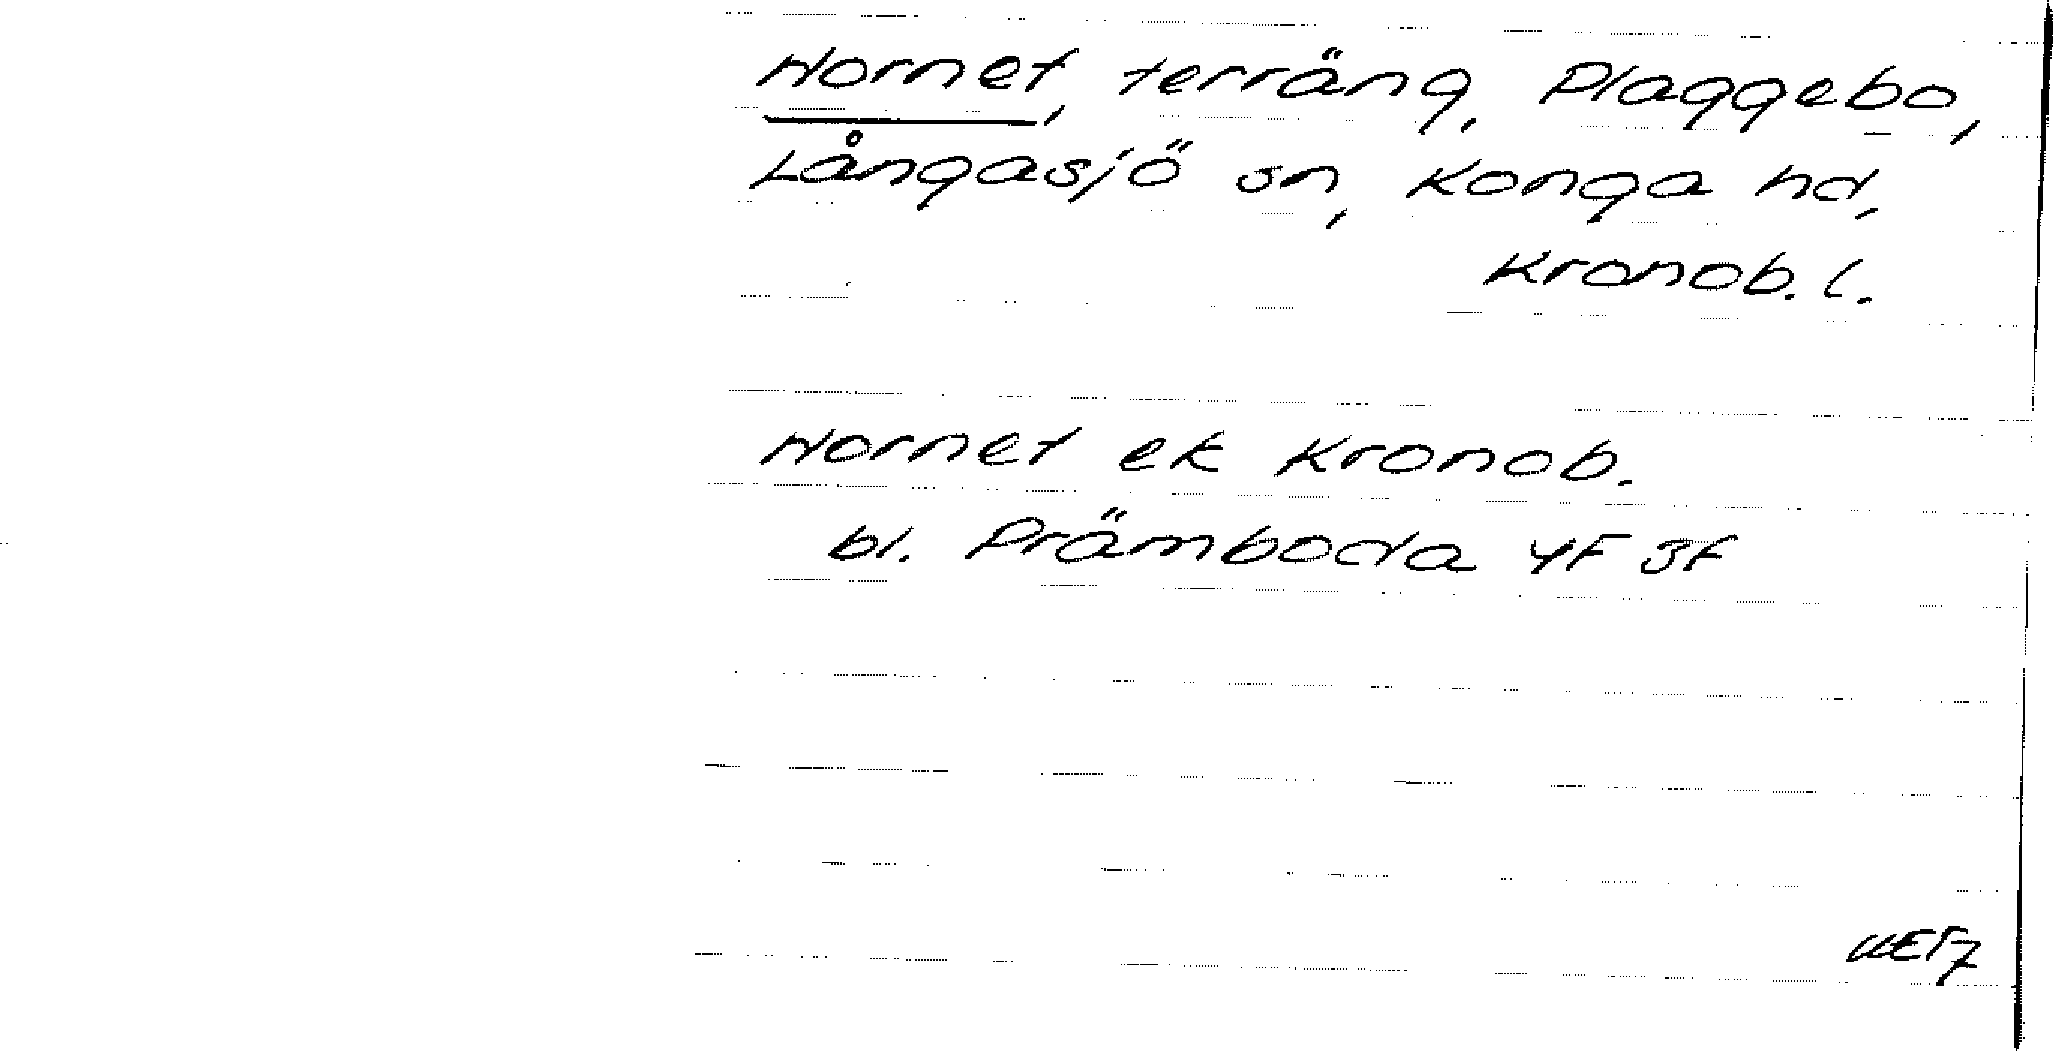 Hornet, terräng, Plaggebo,
Långasjö sn, Konga hd,
Kronob. l.
Hornet ek Kronob.
bl. Främboda 4F 3f